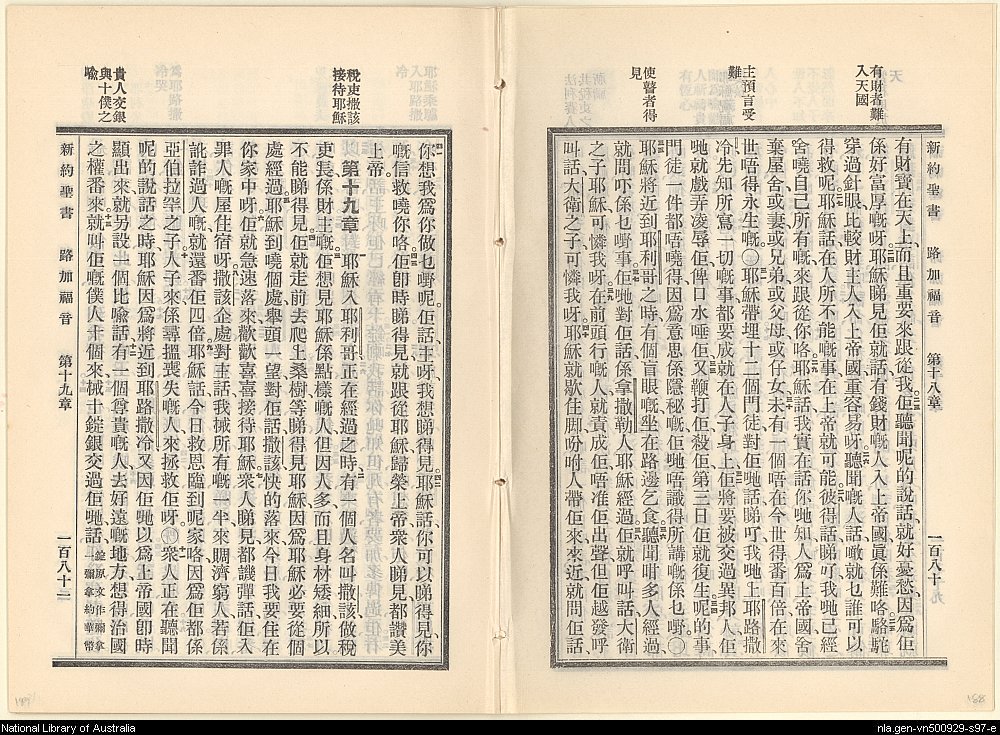 有財者難
入天國
主預言受
難
使瞽者得
見
新約聖書　路加福音　第十八章　一百八十九
有財寶在天上、而且重要來跟從我。佢聽聞呢的說話、就好憂愁、因爲佢
係好富厚嘅呀。耶穌睇見佢就話、有錢財嘅人、入上帝國眞係難咯。駱駝
穿過針眼、比較財主人入上帝國、重容易呀。聽聞嘅人話、噉就乜誰可以
得救呢。耶穌話、在人所不能嘅事、在上帝就可能。彼得話、睇吓、我哋已經
舍曉自己所有嘅來跟從你咯。耶穌話、我實在話你哋知、人爲上帝國舍
棄屋舍、或妻、或兄弟、或父母、或仔女、未有一個唔在今世得番百倍、在來
世唔得永生嘅。○耶穌帶埋十二個門徒、對佢哋話、睇吓、我哋上耶路撒
冷、先知所寫一切嘅事、都要成就在人子身上、佢將要被交過異邦人、佢
哋就戲弄凌辱佢、俾口水唾佢、又鞭打佢、殺佢、第三日佢就復生。呢的事
門徒一件都唔曉得、因爲意思係隱秘嘅、佢哋唔識得所講嘅係乜嘢。○
耶穌將近到耶利哥之時、有個盲眼嘅、坐在路邊乞食、聽聞咁多人經過、
就問吓係乜嘢事。佢哋對佢話、係拿撒勒人耶穌經過。佢就呼叫話、大衛
之子耶穌、可憐我呀。在前頭行嘅人、就責成佢、唔准佢出聲、但佢越發呼
叫話、大衛之子、可憐我呀。耶穌就歇住脚、吩咐人帶佢來、來近就問佢話、
稅吏撒該
接待耶穌
貴人交銀
與十僕之
喩
你想我爲你做乜嘢呢。佢話、主呀、我想睇得見。耶穌話、你可以睇得見、你
嘅信救曉你咯。佢卽時睇得見、就跟從耶穌、歸榮上帝、衆人睇見都讚美
上帝。
第十九章　耶穌入耶利哥、正在經過之時、有一個人名叫撒該、做稅
吏長、係財主嘅。佢想見耶穌係點樣嘅人、但因人多、而且身材矮細、所以
不能睇得見佢、就走前去、爬上桑樹等睇得見耶穌、因爲耶穌必要從個
處經過。耶穌到曉個處、舉頭一望、對佢話、撒該、快的落來、今日我要住在
你家中呀。佢就急速落來、歡歡喜喜接待耶穌。衆人睇見、都譏彈話、佢入
罪人嘅屋住宿呀。撒該企處對主話、我械所有嘅一半來賙濟窮人、若係
訛詐過人嘅、就還番佢四倍。耶穌話、今日救恩臨到呢家咯、因爲佢都係
亞伯拉罕之子。人子來、係尋搵喪失嘅人來拯救佢呀。○衆人正在聽聞
呢的說話之時、耶穌因爲將近到耶路撒冷、又因佢哋以爲上帝國卽時
顯出來、就另設一個比喩話、有一個尊貴嘅人、去好遠嘅地方、想得治國
之權番來、就叫佢嘅僕人十個來、械十錠銀交過佢哋話、錠原文作彌拿
彌拿約華幣
新約聖書　路加福音　第十九章　一百八十二
National Library of Australia
nla.gen-vn500929-s97-e